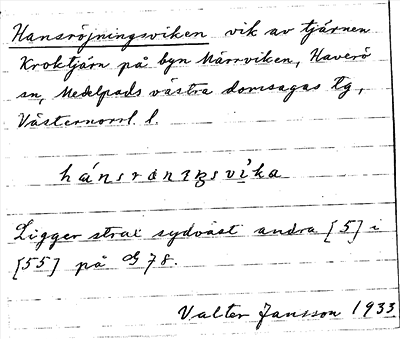 Hansröjningsviken vik av tjärnen
Kroktjärn på byn Märrviken, Haverö
sn, Medelpads västra domsagas tg,
Västernorrl. l.
hánsrønıŋsvìka
Ligger strax sydväst andra [5] i
[55] på G 78.
Valter Jansson 1933